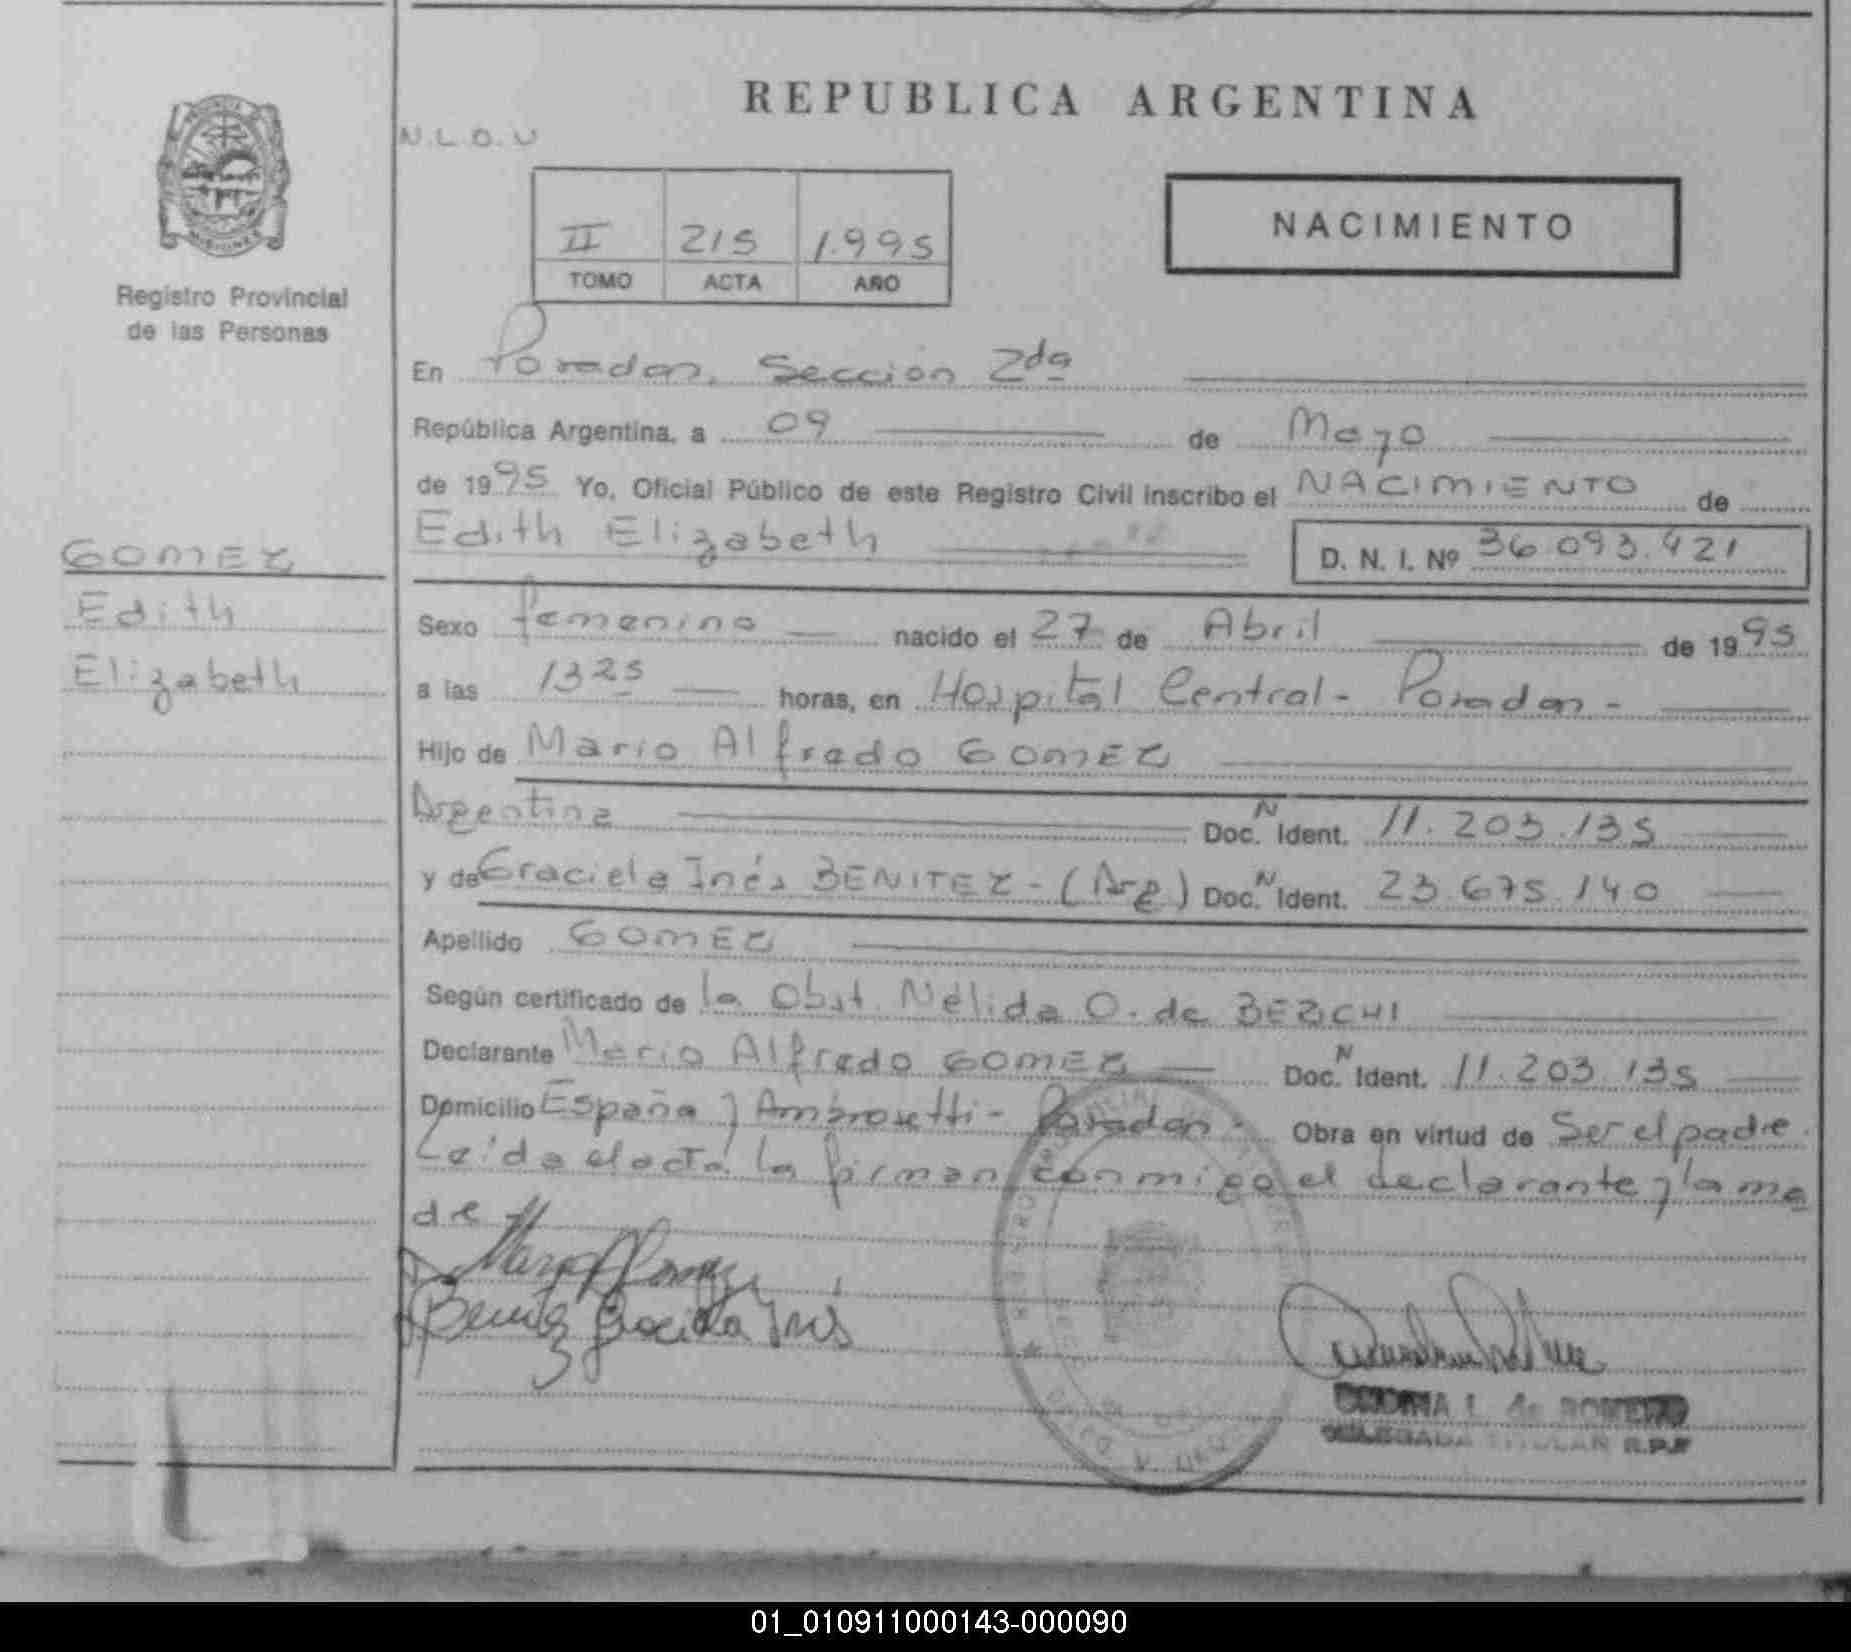 REPUBLICA ARGENTINA
N.L.O.U
MISIONES
Registro Provincial
de las Personas
II 215 1.995
TOMO ACTA AÑO
NACIMIENTO
En Posadas, Sección 2da
República Argentina, a 09 de Mayo
de 1995 Yo, Oficial Público de este Registro Civil inscribo el NACIMIENTO de
Edith Elizabeth D. N. I. Nº 36.093.421
GOMEZ
Edith
Elizabeth
Sexo femenino nacido el 27 de Abril de 1995
a las 1325 horas, en Hospital Central - Posadas -
Hijo de Mario Alfredo GOMEZ
Argentina Doc. N Ident. 11.203.135
y de Graciela Inés BENITEZ - (Arg) Doc. N Ident. 23.675.140
Apellido GOMEZ
Según certificado de la Obst. Nélida O. de
Declarante Mario Alfredo GOMEZ Doc. N Ident. 11.203.135
Domicilio España y Ambrosetti - Posadas - Obra en virtud de Ser el padre.
Leída el acta la firman conmigo el declarante y la ma
dre
Benitez Graciela Inés
L. de ROMERO
DELEGADA TITULAR R.P.P
01_010911000143-000090